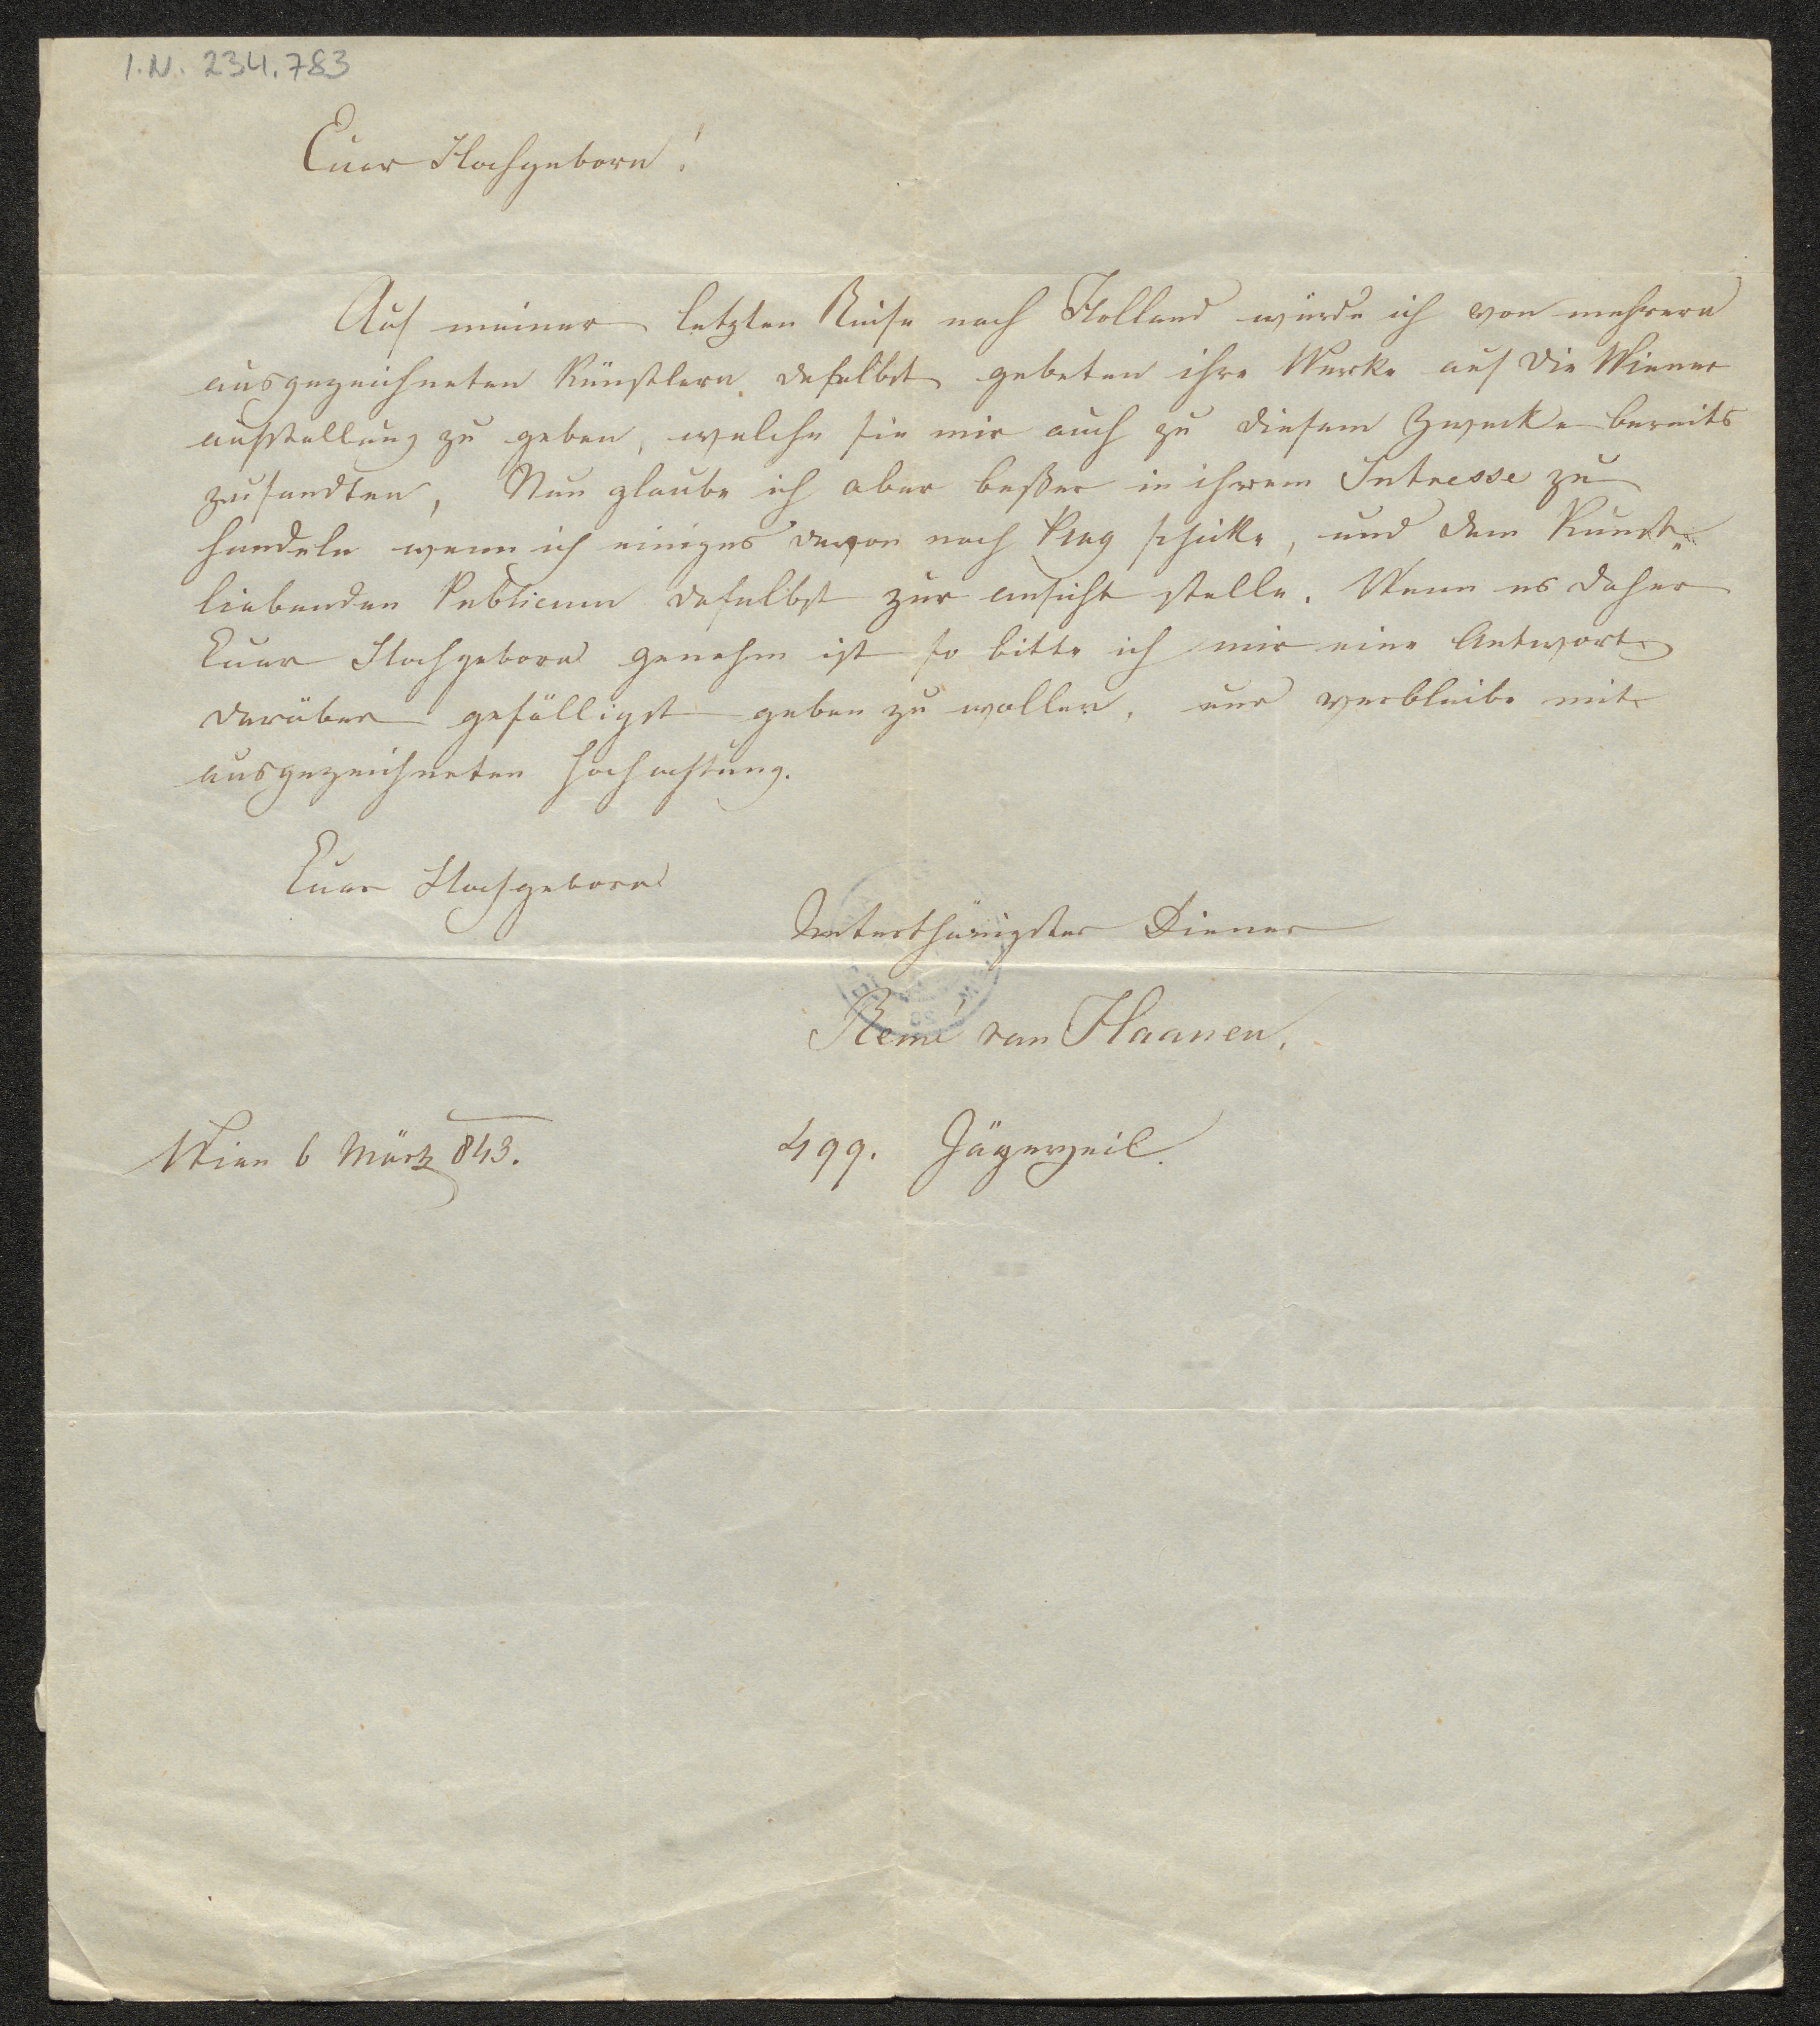 I.N. 234.783
Euer Hochgeborn!
Auf meiner letzten Reise nach Holland würde ich von mehrern
ausgezeichneten Künstlern daselbst gebeten ihre Werke auf die Wiener
ausstellung zu geben, welche sie mir auch zu diesem Zwecke bereits
zusandten, Nun glaube ich aber beßer in ihrem Intresse zu
handeln wenn ich einiges davon nach Prag schicke, und dem Kunst„
liebenden Publicum daselbst zur ansicht stelle. Wenn es daher
Euer Hochgeborn genehm ist so bitte ich mir eine Antwort
darüber gefälligst geben zu wollen, und verbleibe mit
ausgezeichneten Hochachtung.
Euer Hochgeborn
Unterthänigster Diener
Remi van Haanen.
Wien 6 März 843.
499. Jägerzeil.